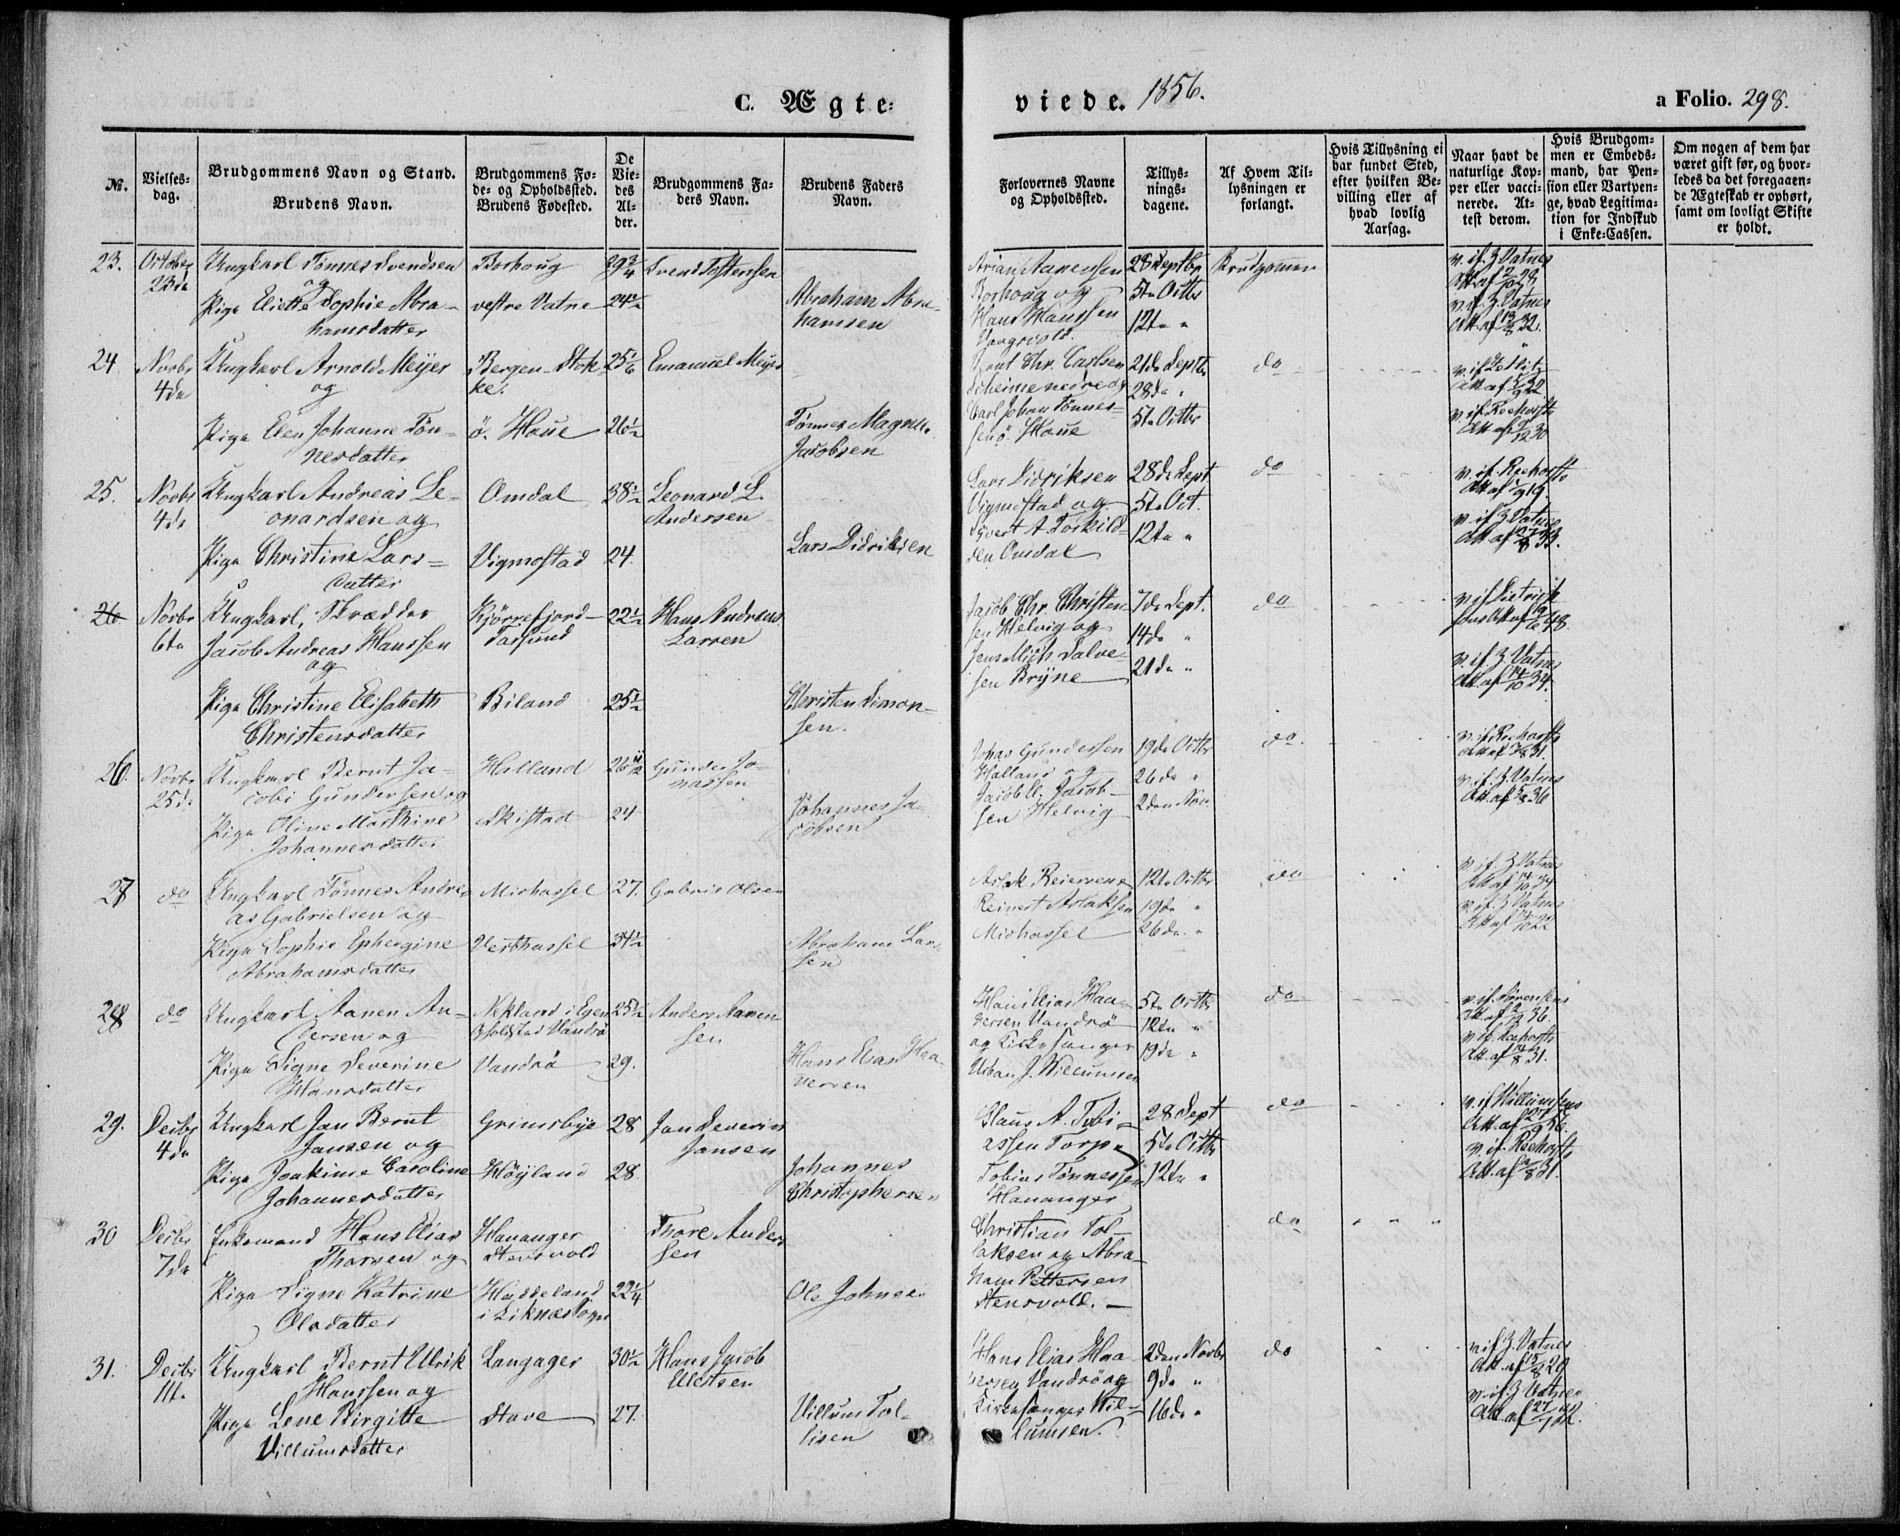 C. Ægte=
viede. 1856.
a Folio. 298.
No.
Vielses-
dag.
Brudgommens Navn og Stand.
Brudens Navn.
Brudgommens Fø-
de- og Opholdssted.
Brudens Fødested.
De
Vie-
des
Al-
der.
Brudgommens Fa-
ders Navn.
Brudens Faders
Navn.
Forlovernes Navne
og Opholdssted.
Tillys-
nings-
dagene.
Af Hvem Til-
lysningen er
forlangt.
Hvis Tillysning ei
har fundet Sted,
efter hvilken Be-
villing eller af
hvad lovlig
Aarsag.
Naar havt de
naturlige Kop-
per eller vacci-
nerede. At-
test derom.
Hvis Brudgom-
men er Embeds-
mand, har Pen-
sion eller Vartpen-
ge, hvad Legitima-
tion for Indskud
i Enke-Cassen.
Om nogen af dem har
været gift før, og hvor-
ledes da det foregaaen-
de Ægteskab er ophørt,
samt om lovligt Skifte
er holdt.
23.
October
23de
Ungkarl Tønnes Svendsen
og
Pige Eliette Sophie Abra-
hamsdatter
Borhoug
vestre Vatne
29 3/4
24 1/2
Svend Tostensen
Abraham Abra-
hamsen
Arian Aanensen
Borhoug og
Hans Hanssen
28 Septbr
5te Octbr
12te "
Brudgommen
v. if. Z Vatnes
v. if. Z. Vatnes
24
Novbr
4de
Ungkarl Arnold Meyer
og
Pige Elen Johanne Tøn-
nesdatter
Bergen - Stok-
ke.
ø. Haue
25 1/6
26 1/2
Emanuel Meyer
Tønnes Magnus
Jacobsen
Bent Chr. Carlsen
Carl Johan Tønnes-
sen ø. Haue
21de Septbr
28de "
5te Octbr
do
25.
Novbr
4de
Ungkarl Andreas Le-
onardsen og
Pige Christine Lars-
datter
Omdal
Vigmostad
38 1/2
24.
Leonard L.
Andersen
Lars Didriksen
Lars Didriksen
Vigmostad og
Syvert A Torkild-
sen Omdal
28de Sept
5te Oct.
12te "
do
v. if. Z Vatnes
26
Novbr
6te
Ungkarl, Skrædder
Jacob Andreas Hanssen
og
Pige Christine Elisabeth
Christensdatter
Kjørrefjord-
Farsund
Biland
22 1/2
25 1/2
Hans Andreas
Larsen
Christen Simon-
sen.
Jacob Chr. Christen-
sen Helvig og
Jens Mich. Salve-
sen Bryne
7de Sept.
14de "
21de "
do
v. if. Z Vatnes
26.
Novbr
25de
Ungkarl Bernt Ja-
cobi Gundersen og
Pige Oline Marthine
Johannesdatter
Halland
Skistad
26 1/2
24
Gunder Jo-
nassen
Johannes Ja-
cobsen
Johas Gundersen
Halland og
Jacob C. Jacob-
sen Helvig
19de Octbr
26de "
2den Nov
do.
v. if. Z. Vatnes
27
do
Ungkarl Tønnes Andre-
as Gabrielsen og
Pige Sophie Ephergine
Abrahamsdatter
Midhassel
Vesthassel
27.
34 1/2
Gabriel Olsen
Abraham Lar-
sen
Aslak Reiersen
Reinert Aslaksen
Midhassel
12te Octbr
19de "
26de "
do
v. if. Z Vatnes
v. if. Z. Vatnes
28
do
Ungkarl Aanen An-
dersen og
Pige Signe Severine
Hansdatter
Vandrø
25 1/2
29.
Anders Aanen-
sen
Hans Elias Haa-
versen
Hans Elias Haa-
versen Vandrø
og Kirkesanger
Urban J. Willumsen
5te Octbr
12te "
19de "
do
v. if. Sørensens
29.
Decbr
4de
Ungkarl Jan Bernt
Jansen og
Pige Joakime Caroline
Johannesdatter
Grimsbye
Høyland
28
28.
Jan Severin
Jansen
Johannes
Christophersen
Claus A. Tobi-
assen Torp og
Tobias Tønnessen
Hananger
28 Sept
5te Octbr
12te "
do
v. if. Willumsens
30
Decbr
7de
Enkemand Hans Elias
Thorsen og
Pige Signe Katrine
Olsdatter
Hananger
Stensvold
Haddeland
i Liknæs Sogn
22 1/4
Thore Ander-
sen
Ole Johnsen
Christian Tol-
laksen og Abra-
ham Pettersen
Stensvold. —
do
31.
Decbr
11te
Ungkarl Bernt Ulrik
Hanssen og
Pige Lene Birgitte
Villumsdatter
Langager
Stave
30 1/2
27.
Hans Jacob
Villum Tol-
lisen
Hans Elias Haa-
versen Vandrø og
Kirkesanger Wil-
lumsen.
2den Novbr
9de "
16de "
do
v. if. Z. Vatnes
v. if. Z Vatnes